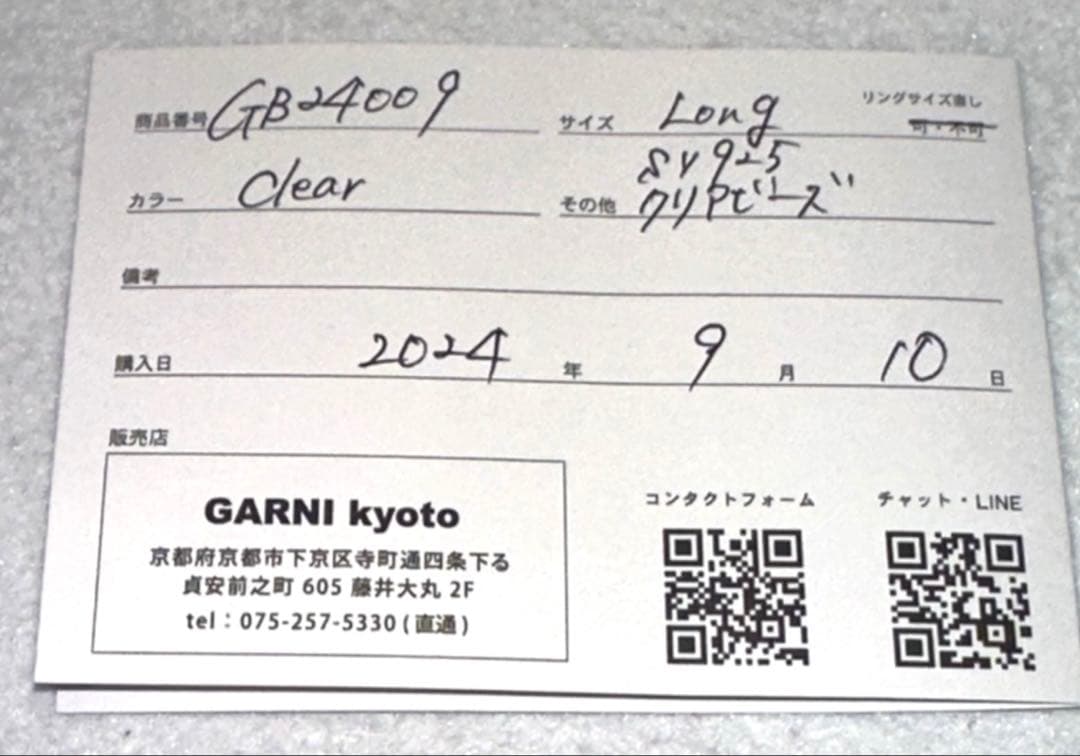 商品番号 GB24009 サイズ Long リングサイズ直し
可・不可
カラー Clear その他 SV925
クリアビーズ
備考
購入日 2024 年 9 月 10 日
販売店
GARNI kyoto
京都府京都市下京区寺町通四条下る
貞安前之町 605 藤井大丸 2F
tel：075-257-5330 (直通)
コンタクトフォーム チャット・LINE